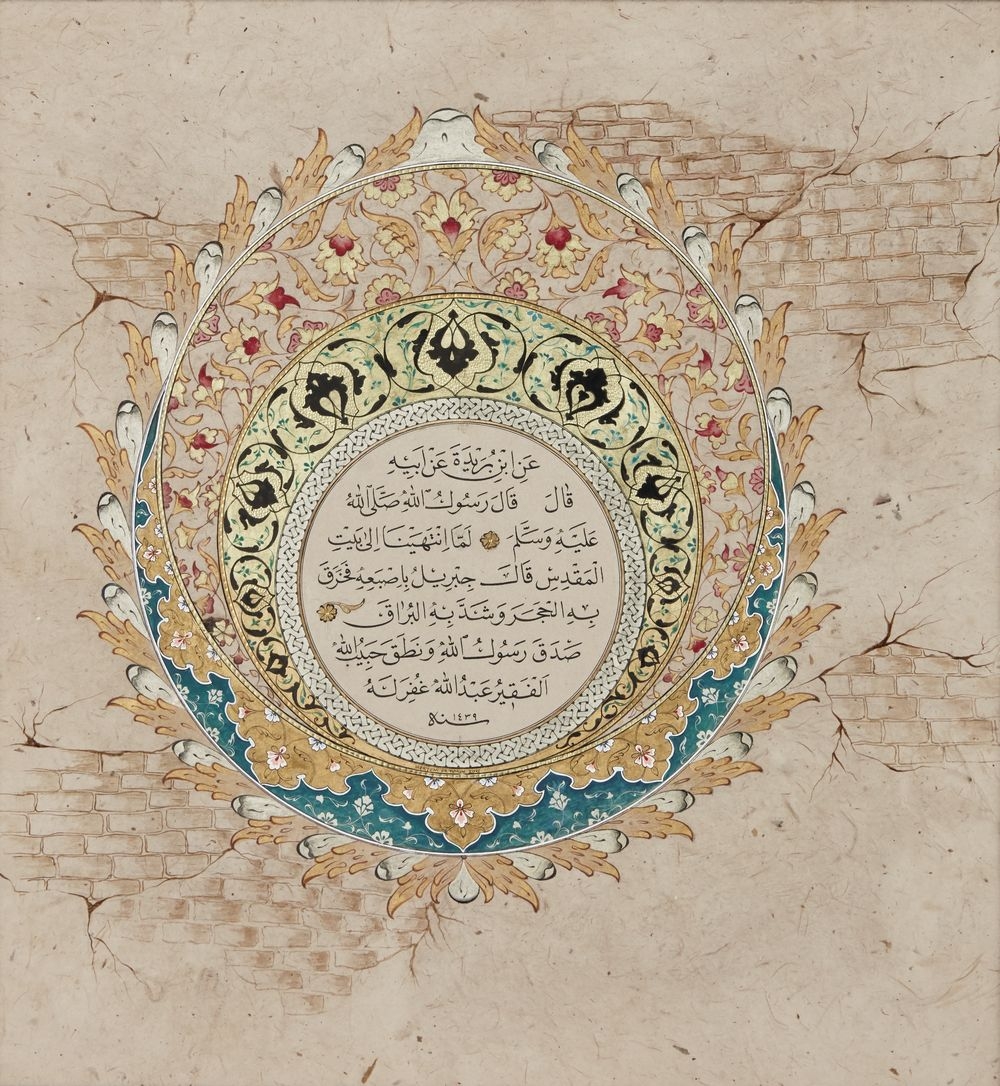 عَنِ ابْنِ بُرَيْدَةَ عَنْ اَبِيهِ
قَالَ قَالَ رَسُولُ اللهِ صَلَّى اللهُ
عَلَيْهِ وَسَلَّمَ لَمَّا انْتَهَيْنَا اِلَى بَيْتِ
الْمَقْدِسِ قَالَ جِبْرِيلُ بِاِصْبَعِهِ فَخَرَقَ
بِهِ الْحَجَرَ وَشَدَّ بِهِ الْبُرَاقَ
صَدَقَ رَسُولُ اللهِ وَنَطَقَ حَبِيبُ اللهِ
الْفَقِيرُ عَبْدُ اللهِ غُفِرَ لَهُ
سنه ١٤٣٩